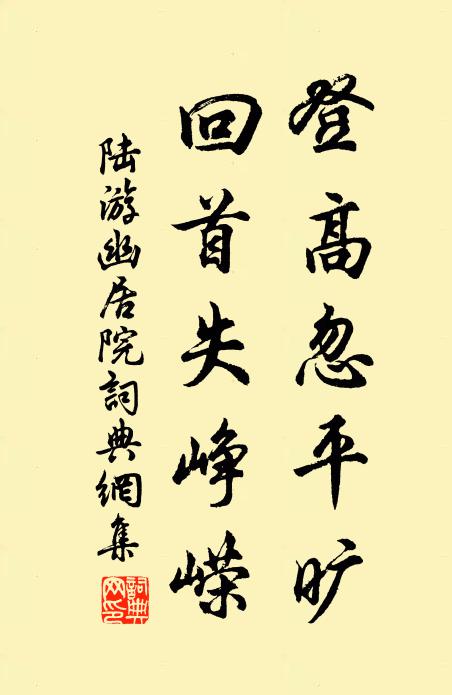 登高忽平旷
回首失峥嵘
陆游幽居院詞典網集
詞典网印